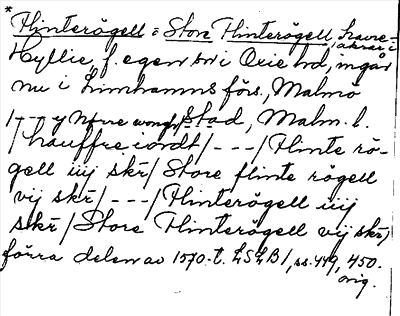 * Flinterögell = Store Flinterögell, havre-
åkrar i
Hyllie f. egen sn i Oxie hd, ingår
nu i Limhamns förs., Malmö
/---y Nørre wong/ Stad, Malm. l.
/hauffre iordt/---/Flinte rö-
gell iiij skr/Store flinte rögell
vij skr/---/Flinterögell iiij
skr/Store Flinterögell vij skr/
förra delen av 1570-t. LSLB1, ss. 449, 450.
orig.